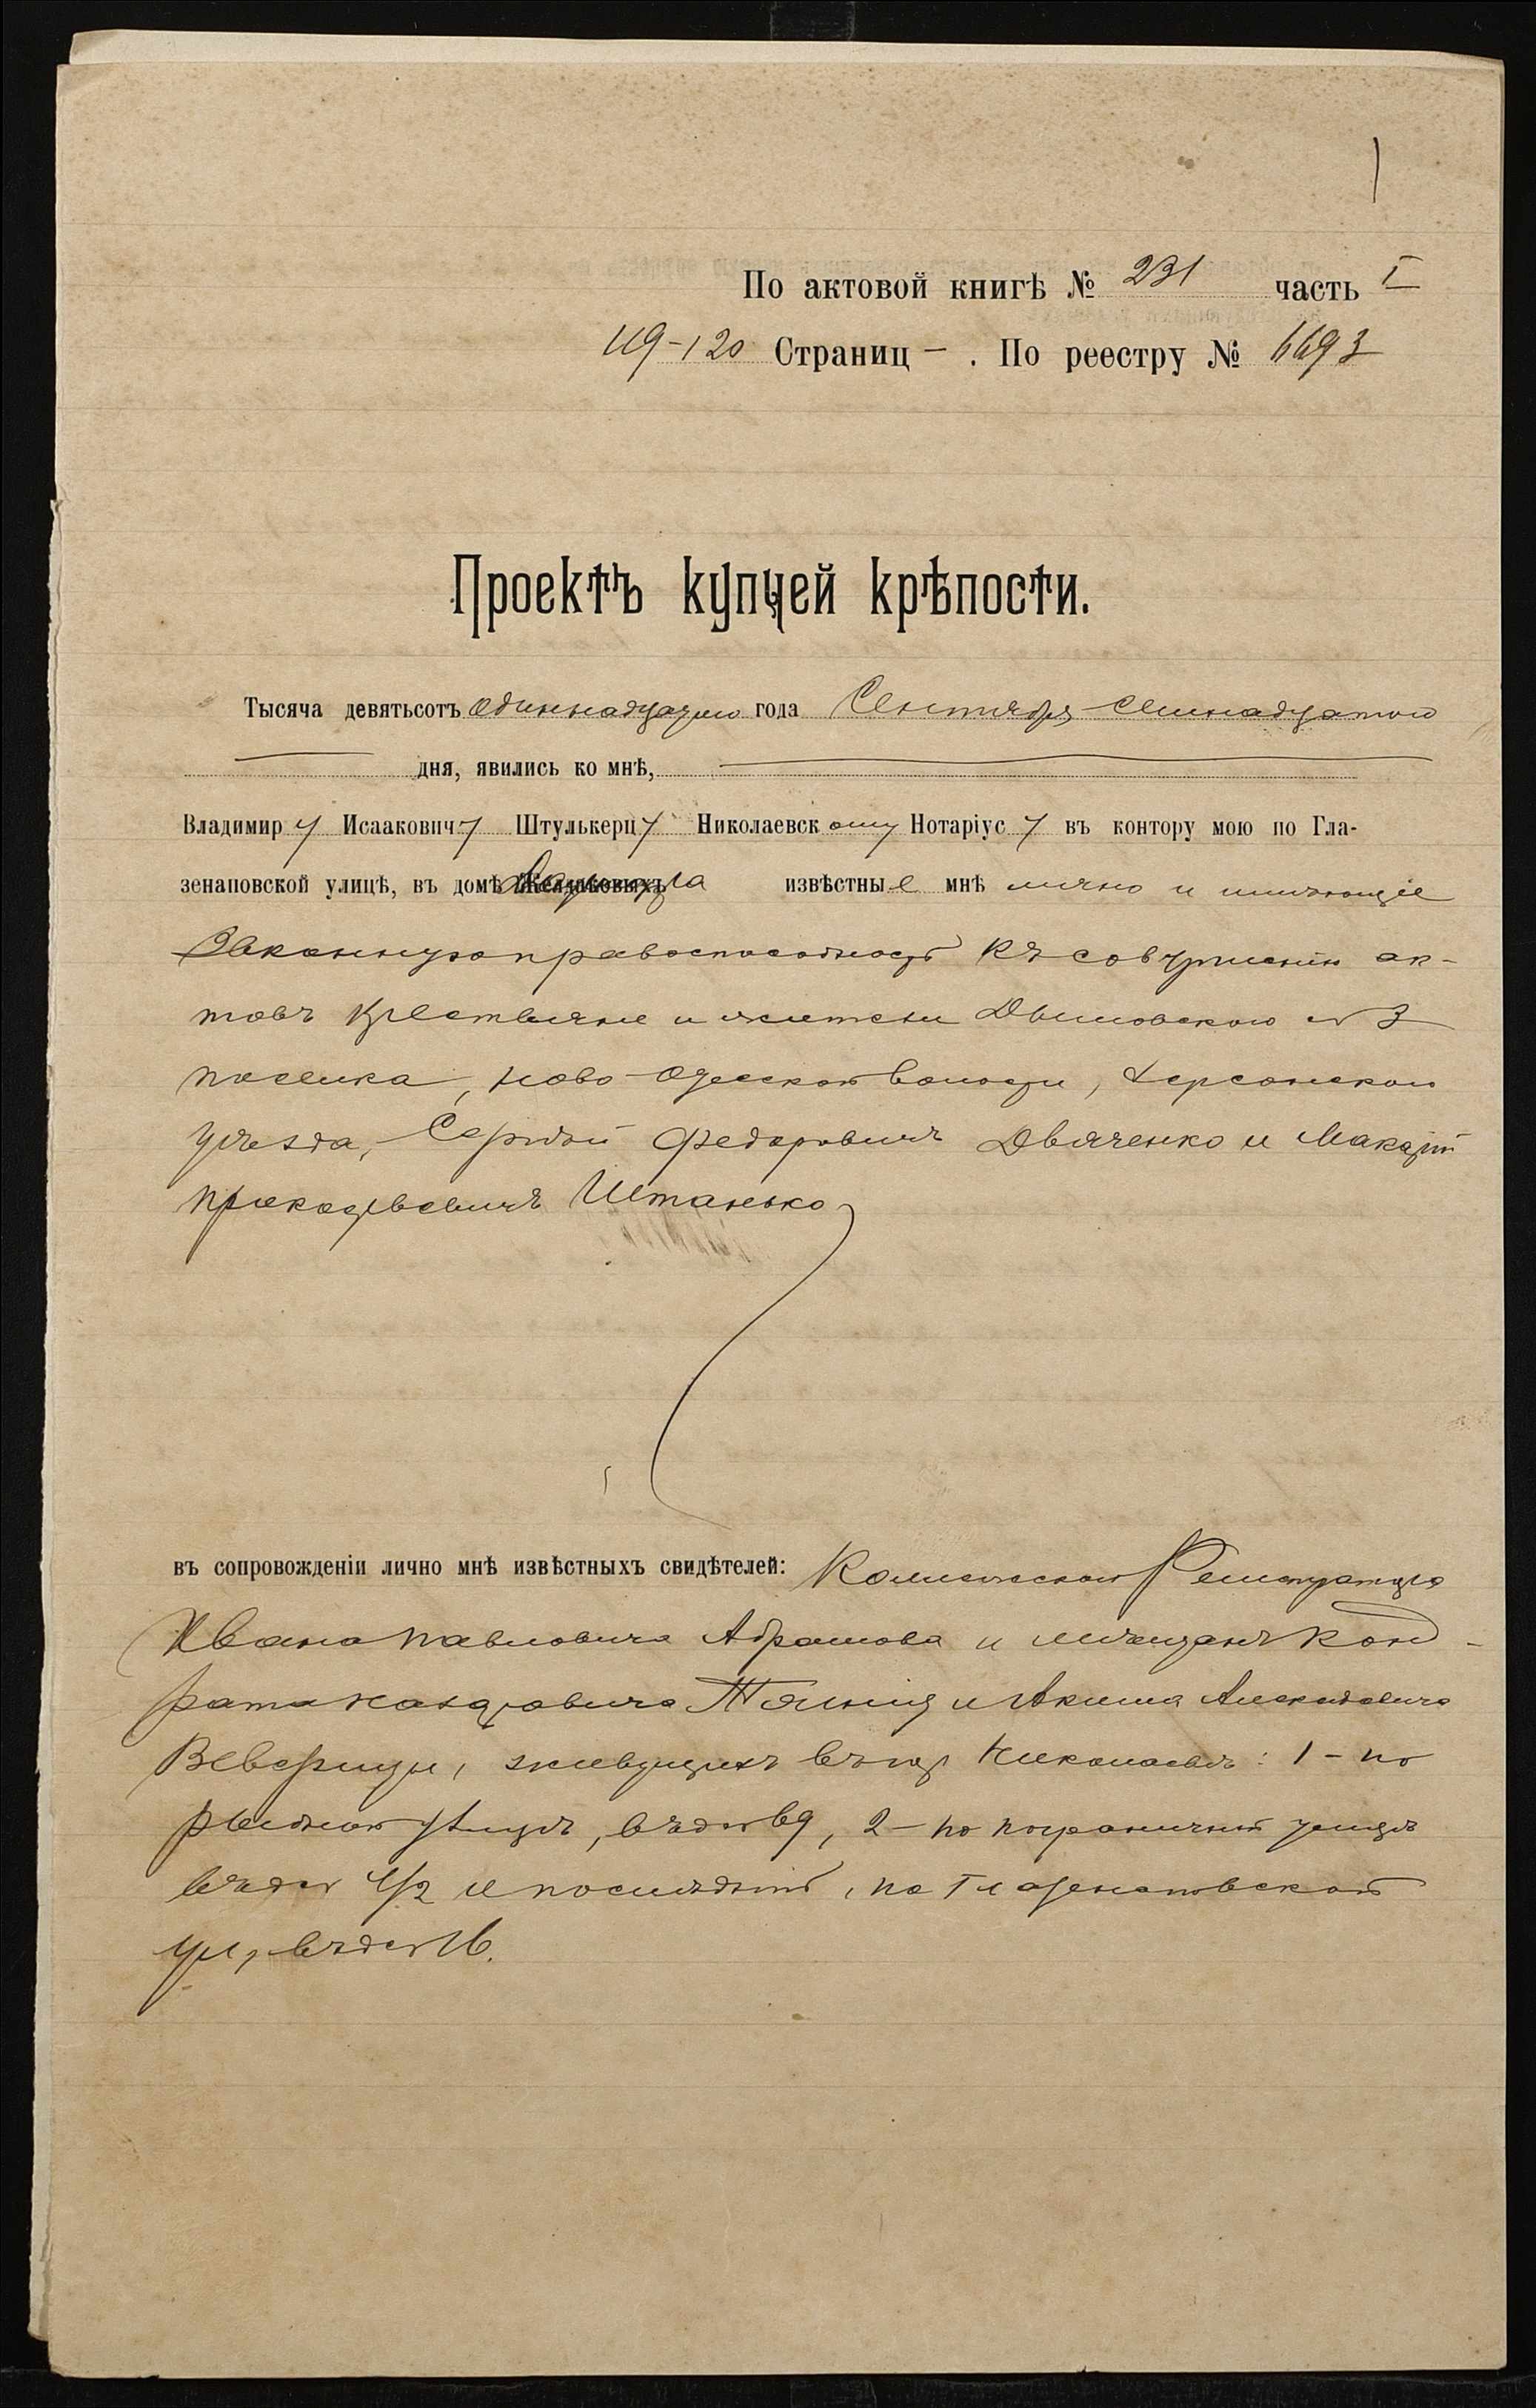 По актовой книгѣ № 231 часть I
119-120 Страниц — . По реестру № 6693
Проектъ купчей крѣпости.
Тысяча девятьсотъ одиннадцатаго года Сентября семнадцатаго
дня, явились ко мнѣ,
Владимиру Исааковичу Штулькерцу Николаевскому Нотаріусу въ контору мою по Гла-
зенаповской улицѣ, въ домѣ извѣстные мнѣ лично и имѣющіе
законную правоспособность къ совершенію ак-
товъ крестьяне и жители Дымовского № 3
поселка, Ново-Одесской волости, Херсонского
уѣзда, Сергѣй Федоровичъ Дьяченко и Макарій
Прокофьевичъ Штанько
въ сопровожденіи лично мнѣ извѣстныхъ свидѣтелей: Коллежскаго Регистратора
Ивана Павловича Абрамова и мѣщанъ Конд-
рата и Акима Алексѣевича
Веверицы, живущихъ въ гор Николаевѣ: 1 - по
Рыбной улицѣ, въ д № 69, 2 - по Пограничной улицѣ
въ д № 4/2 и послѣдній, по Глазенаповской
ул, въ д № 16.